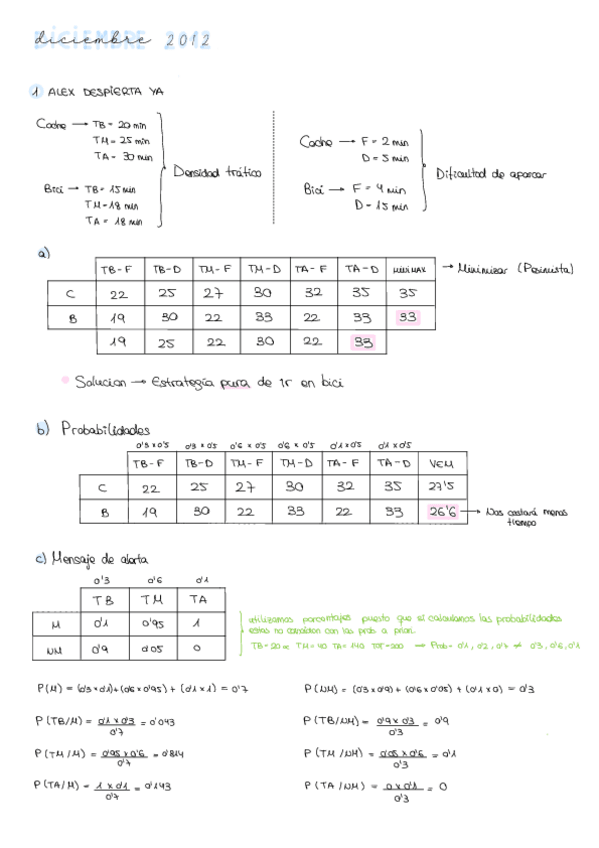 diciembre 2012
1 ALEX DESPIERTA YA
Coche → TB = 20 min
TM = 25 min
TA = 30 min
Densidad tráfico
Bici → TB = 15 min
TM = 18 min
TA = 18 min
Coche → F = 2 min
D = 5 min
Dificultad de aparcar
Bici → F = 4 min
D = 15 min
a)
TB-F TB-D TM-F TM-D TA-F TA-D MINIMAX → Minimizar (Pesimista)
C 22 25 27 30 32 35 35
B 19 30 22 33 22 33 33
19 25 22 30 22 33
Solucion → Estrategia pura de ir en bici
b) Probabilidades
0'3 x 0'5 0'3 x 0'5 0'6 x 0'5 0'6 x 0'5 0'1 x 0'5 0'1 x 0'5
TB-F TB-D TM-F TM-D TA-F TA-D VEM
C 22 25 27 30 32 35 27'5
B 19 30 22 33 22 33 26'6 → Nos costará menos tiempo
c) Mensaje de alerta
0'3 0'6 0'1
TB TM TA
M 0'1 0'95 1
NM 0'9 0'05 0
utilizamos porcentajes puesto que si calculamos las probabilidades
estas no coinciden con las prob a priori.
TB = 20 TM = 40 TA = 140 TOT = 200 → Prob = 0'1, 0'2, 0'7 ≠ 0'3, 0'6, 0'1
P(M) = (0'3 x 0'1) + (0'6 x 0'95) + (0'1 x 1) = 0'7
P(TB/M) = 0'1 x 0'3 / 0'7 = 0'043
P(TM/M) = 0'95 x 0'6 / 0'7 = 0'814
P(TA/M) = 1 x 0'1 / 0'7 = 0'143
P(NM) = (0'3 x 0'9) + (0'6 x 0'05) + (0'1 x 0) = 0'3
P(TB/NM) = 0'9 x 0'3 / 0'3 = 0'9
P(TM/NM) = 0'05 x 0'6 / 0'3 = 0'1
P(TA/NM) = 0 x 0'1 / 0'3 = 0